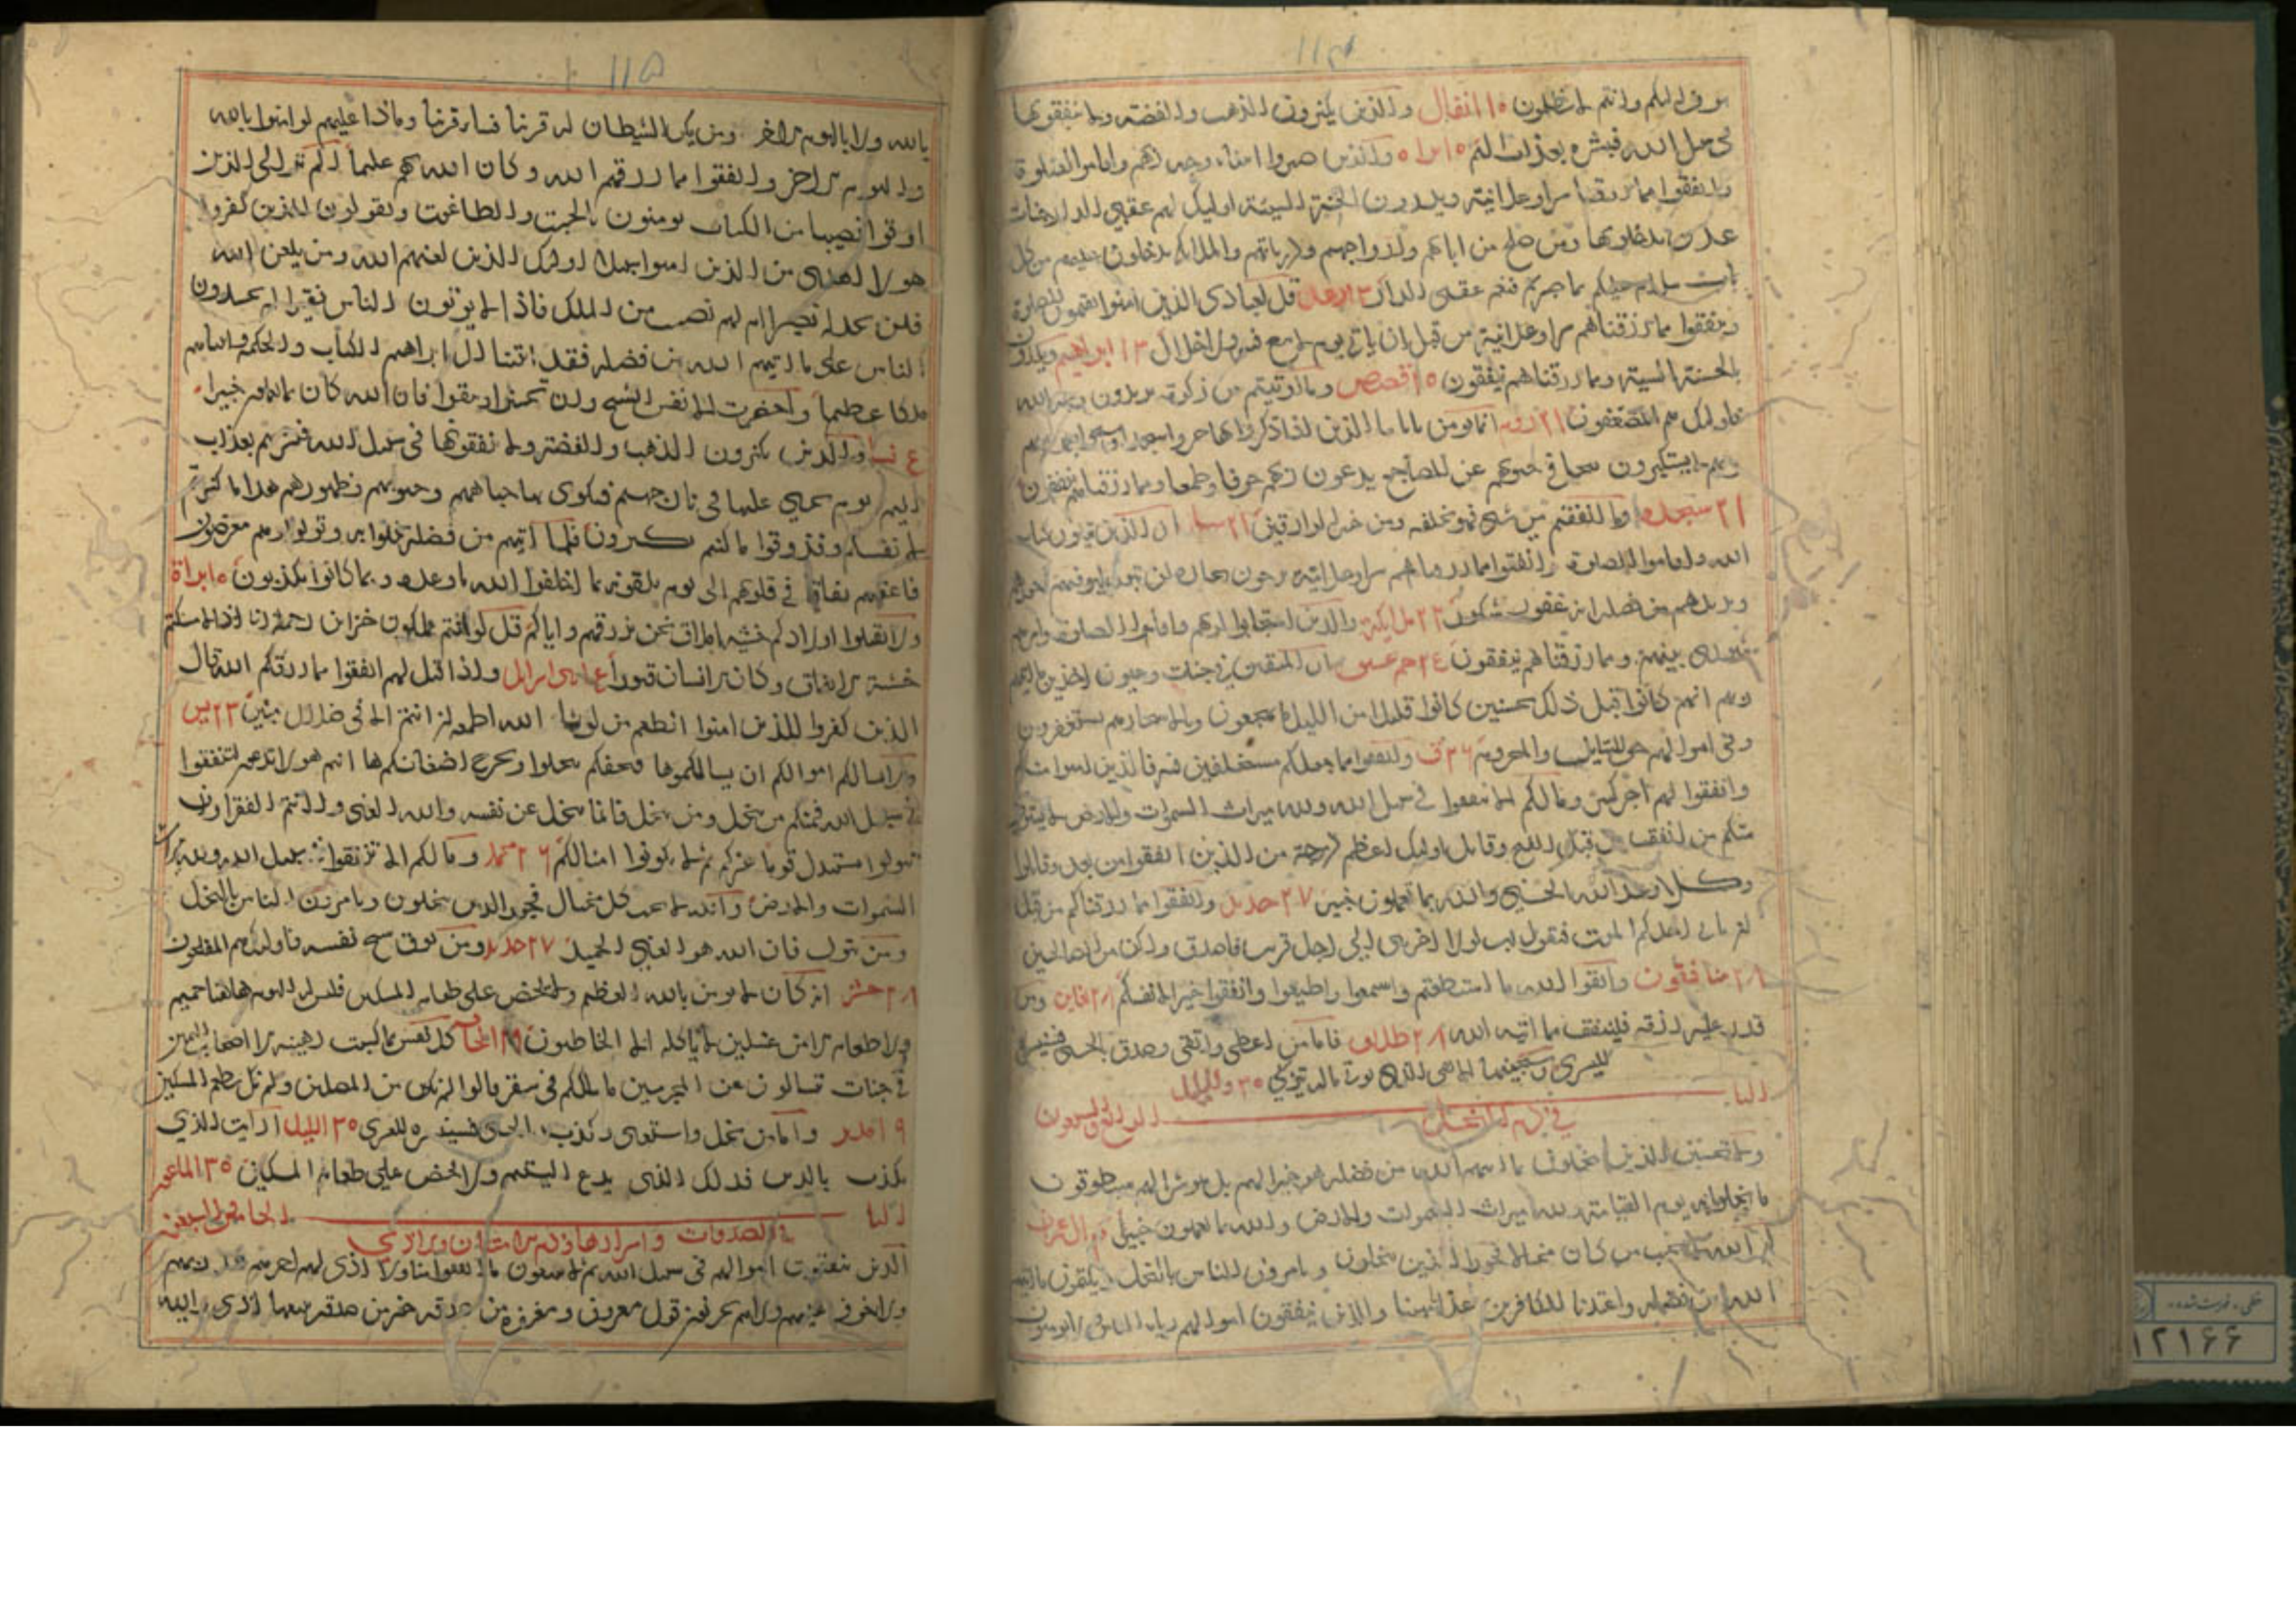 ١١٤
يوف اليكم وانتم لا تظلمون ١٠ انفال والذين يكنزون الذهب والفضة ولا ينفقونها
في سبيل الله فبشرهم بعذاب اليم ١٠ براه والذين صبروا ابتغاء وجه ربهم واقاموا الصلوة
وانفقوا مما رزقناهم سرا وعلانية ويدرون بالحسنة السيئة اوليك لهم عقبى الدار جنات
عدن يدخلونها ومن صلح من ابائهم وازواجهم وذرياتهم والملائكة يدخلون عليهم من كل
باب سلام عليكم بما صبرتم فنعم عقبى الدار قل لعبادي الذين امنوا يقيموا الصلوة
وينفقوا مما رزقناهم سرا وعلانية من قبل ان ياتي يوم لا بيع فيه ولا خلال ١٣ ابراهيم ويدرون
بالحسنة السيئة ومما رزقناهم ينفقون قصص وما اوتيتم من زكوة تريدون وجه الله
فاوليك هم المضعفون ٢١ روم انما يومن باياتنا الذين اذا ذكروا بها خروا سجدا وسبحوا بحمد ربهم
وهم لا يستكبرون تتجافى جنوبهم عن المضاجع يدعون ربهم خوفا وطمعا ومما رزقناهم ينفقون
٢١ سجده وما انفقتم من شي فهو يخلفه وهو خير الرازقين سبا ان الذين يتلون كتاب
الله واقاموا الصلوة وانفقوا مما رزقناهم سرا وعلانية يرجون تجارة لن تبور ليوفيهم اجورهم
ويزيدهم من فضله انه غفور شكور ٢٢ ملايكة والذين استجابوا لربهم واقاموا الصلوة وامرهم
شورى بينهم ومما رزقناهم ينفقون حم عسق ان المتقين في جنات وعيون اخذين ما اتيهم
ربهم انهم كانوا قبل ذلك محسنين كانوا قليلا من الليل ما يهجعون وبالاسحار هم يستغفرون
وفي اموالهم حق للسايل والمحروم ٢٦ ق وانفقوا مما جعلكم مستخلفين فيه فالذين امنوا منكم
وانفقوا لهم اجر كبير ومالكم الا تنفقوا في سبيل الله ولله ميراث السموات والارض لا يستوي
منكم من انفق من قبل الفتح وقاتل اوليك اعظم درجة من الذين انفقوا من بعد وقاتلوا
وكلا وعد الله الحسنى والله بما تعملون خبير ٢٧ حديد وانفقوا مما رزقناكم من قبل
ان ياتي احدكم الموت فيقول رب لولا اخرتني الى اجل قريب فاصدق واكن من الصالحين
٢٨ منافقون واتقوا الله ما استطعتم واسمعوا واطيعوا وانفقوا خيرا لانفسكم ومن
قدر عليه رزقه فلينفق مما اتيه الله ٢٨ طلاق فاما من اعطى واتقى وصدق بالحسنى فسنيسره
لليسرى وسيجنبها الاتقى الذي يوتي ماله يتزكى ٣٠ والليل
الباب الرابع والسبعون
في ذم البخل
ولا تحسبن الذين يبخلون بما اتيهم الله من فضله هو خيرا لهم بل هو شر لهم سيطوقون
ما بخلوا به يوم القيامة ولله ميراث السموات والارض والله بما تعملون خبير ال عمران
ان الله لا يحب من كان مختالا فخورا الذين يبخلون ويامرون الناس بالبخل ويكتمون ما اتيهم
الله من فضله واعتدنا للكافرين عذابا مهينا والذين ينفقون اموالهم رياء الناس ولا يومنون
١١٥
بالله ولا باليوم الاخر ومن يكن الشيطان له قرينا فساء قرينا وماذا عليهم لو امنوا بالله
واليوم الاخر وانفقوا مما رزقهم الله وكان الله بهم عليما الم تر الى الذين
اوتوا نصيبا من الكتاب يومنون بالجبت والطاغوت ويقولون للذين كفروا
هولا اهدى من الذين امنوا سبيلا اوليك الذين لعنهم الله ومن يلعن الله
فلن تجد له نصيرا ام لهم نصيب من الملك فاذا لا يوتون الناس نقيرا ام يحسدون
الناس على ما اتيهم الله من فضله فقد اتينا ال ابراهيم الكتاب والحكمة واتيناهم
ملكا عظيما واحضرت الانفس الشح وان تحسنوا وتتقوا فان الله كان بما تعملون خبيرا
نسا والذين يكنزون الذهب والفضة ولا ينفقونها في سبيل الله فبشرهم بعذاب
اليم يوم يحمى عليها في نار جهنم فتكوى بها جباههم وجنوبهم وظهورهم هذا ما كنزتم
لانفسكم فذوقوا ما كنتم تكنزون فلما اتيهم من فضله بخلوا به وتولوا وهم معرضون
فاعقبهم نفاقا في قلوبهم الى يوم يلقونه بما اخلفوا الله ما وعدوه وبما كانوا يكذبون ١٠ براة
ولا تقتلوا اولادكم خشية املاق نحن نرزقهم واياكم قل لو انتم تملكون خزاين رحمة ربي اذا لامسكتم
خشية الانفاق وكان الانسان قتورا بنى اسرايل واذا قيل لهم انفقوا مما رزقكم الله قال
الذين كفروا للذين امنوا انطعم من لو يشا الله اطعمه ان انتم الا في ضلال مبين ٢٣ يس
ولا يسالكم اموالكم ان يسالكموها فيحفكم تبخلوا ويخرج اضغانكم ها انتم هولا تدعون لتنفقوا
في سبيل الله فمنكم من يبخل ومن يبخل فانما يبخل عن نفسه والله الغني وانتم الفقرا وان
تتولوا يستبدل قوما غيركم ثم لا يكونوا امثالكم ٢٦ محمد ومالكم الا تنفقوا في سبيل الله ولله ميراث
السموات والارض والله لا يحب كل مختال فخور الذين يبخلون ويامرون الناس بالبخل
ومن يتول فان الله هو الغني الحميد ٢٧ حديد ومن يوق شح نفسه فاوليك هم المفلحون
٢٨ حشر انه كان لا يومن بالله العظيم ولا يحض على طعام المسكين فليس له اليوم هاهنا حميم
ولا طعام الا من غسلين لا ياكله الا الخاطيون ٢٩ الحاقة كل نفس بما كسبت رهينة الا اصحاب اليمين
في جنات يتسالون عن المجرمين ما سلككم في سقر قالوا لم نك من المصلين ولم نك نطعم المسكين
المدثر واما من بخل واستغنى وكذب بالحسنى فسنيسره للعسرى ٣٠ الليل ارايت الذي
يكذب بالدين فذلك الذي يدع اليتيم ولا يحض على طعام المسكين ٣٠ الماعون
الباب الخامس والسبعون
في الصدقات واسرارها وذم الامتنان والاذى
الذين ينفقون اموالهم في سبيل الله ثم لا يتبعون ما انفقوا منا ولا اذى لهم اجرهم عند ربهم
ولا خوف عليهم ولا هم يحزنون قول معروف ومغفرة خير من صدقة يتبعها اذى والله
خطى . فهرست شده
١٢١٦٦